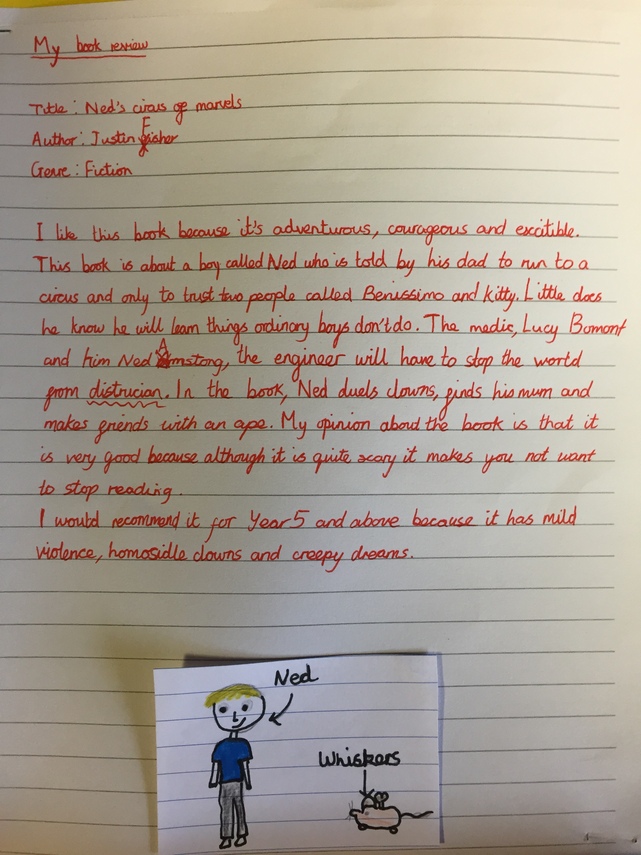 My book review
Title : Ned's circus of marvels
Author : Justin Fisher
Genre : Fiction
I like this book because it's adventurous, courageous and excitible.
This book is about a boy called Ned who is told by his dad to run to a
circus and only to trust two people called Benissimo and Kitty. Little does
he know he will learn things ordinary boys don't do. The medic, Lucy Bomont
and him Ned Armstong, the engineer will have to stop the world
from distrucian. In the book, Ned duels clowns, finds his mum and
makes friends with an ape. My opinion about the book is that it
is very good because although it is quite scary it makes you not want
to stop reading.
I would recommend it for Year 5 and above because it has mild
violence, homosidle clowns and creepy dreams.
Ned
Whiskers